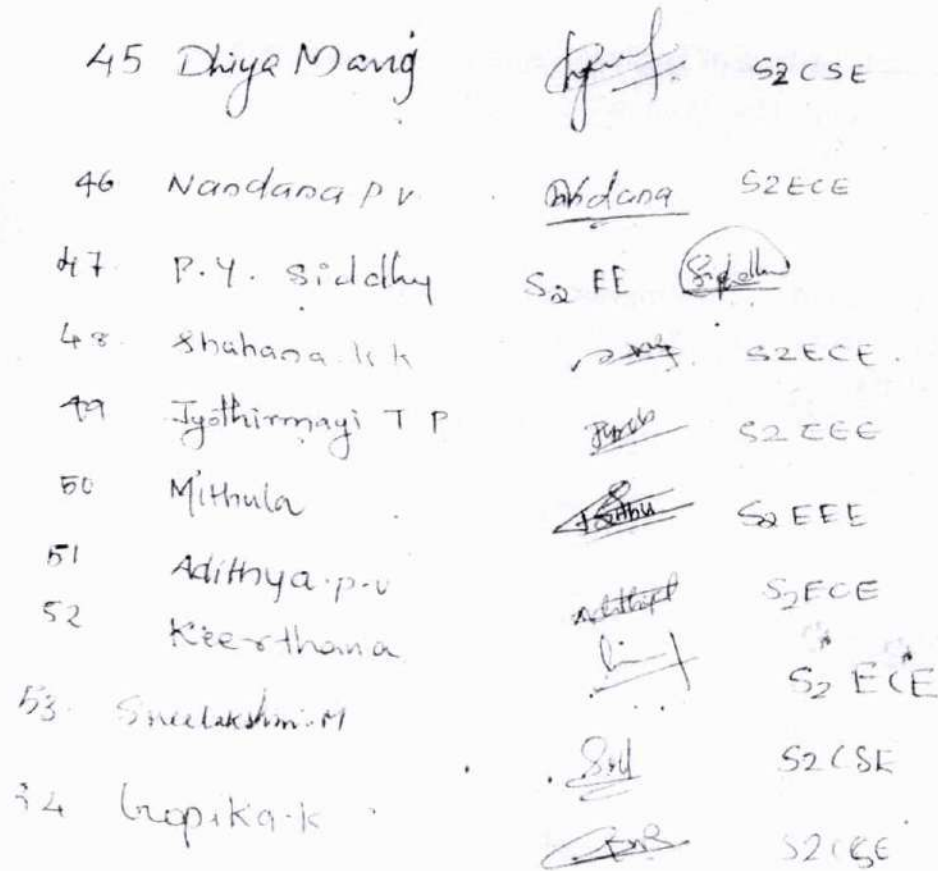 45 Dhiya Manoj S2 CSE
46 Nandana P V. Nandana S2 ECE
47. P.Y. Siddhu S2 EE Siddhu
48. Shahana K K S2ECE.
49 Jyothirmayi T P S2 EEE
50 Mithula S2 EEE
51 Adithya.p.v S2ECE
52 Keerthana S2 ECE
53. Sreelakshmi.M S2CSE
54 Gopika.K S2CSE